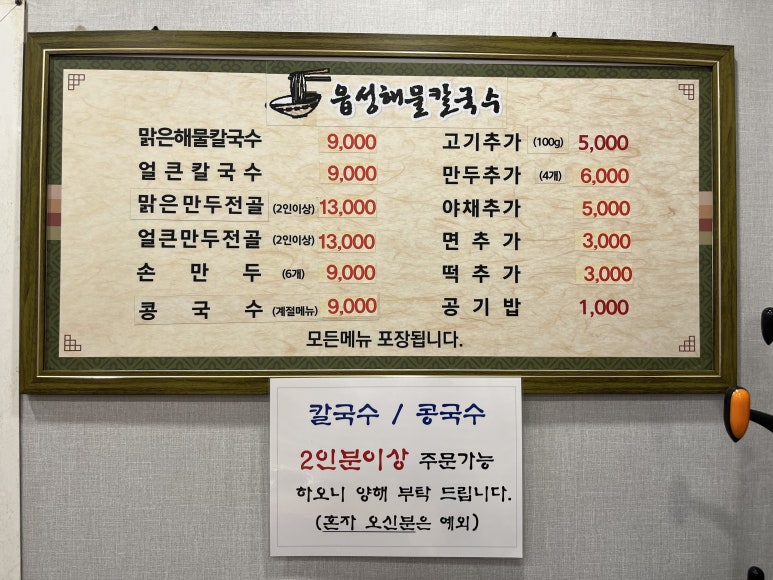 음성해물칼국수
맑은해물칼국수 9,000
얼큰칼국수 9,000
맑은만두전골 (2인이상) 13,000
얼큰만두전골 (2인이상) 13,000
손만두 (6개) 9,000
콩국수 (계절메뉴) 9,000
고기추가 (100g) 5,000
만두추가 (4개) 6,000
야채추가 5,000
면추가 3,000
떡추가 3,000
공기밥 1,000
모든메뉴 포장됩니다.
칼국수 / 콩국수
2인분이상 주문가능
하오니 양해 부탁 드립니다.
(혼자 오신분은 예외)